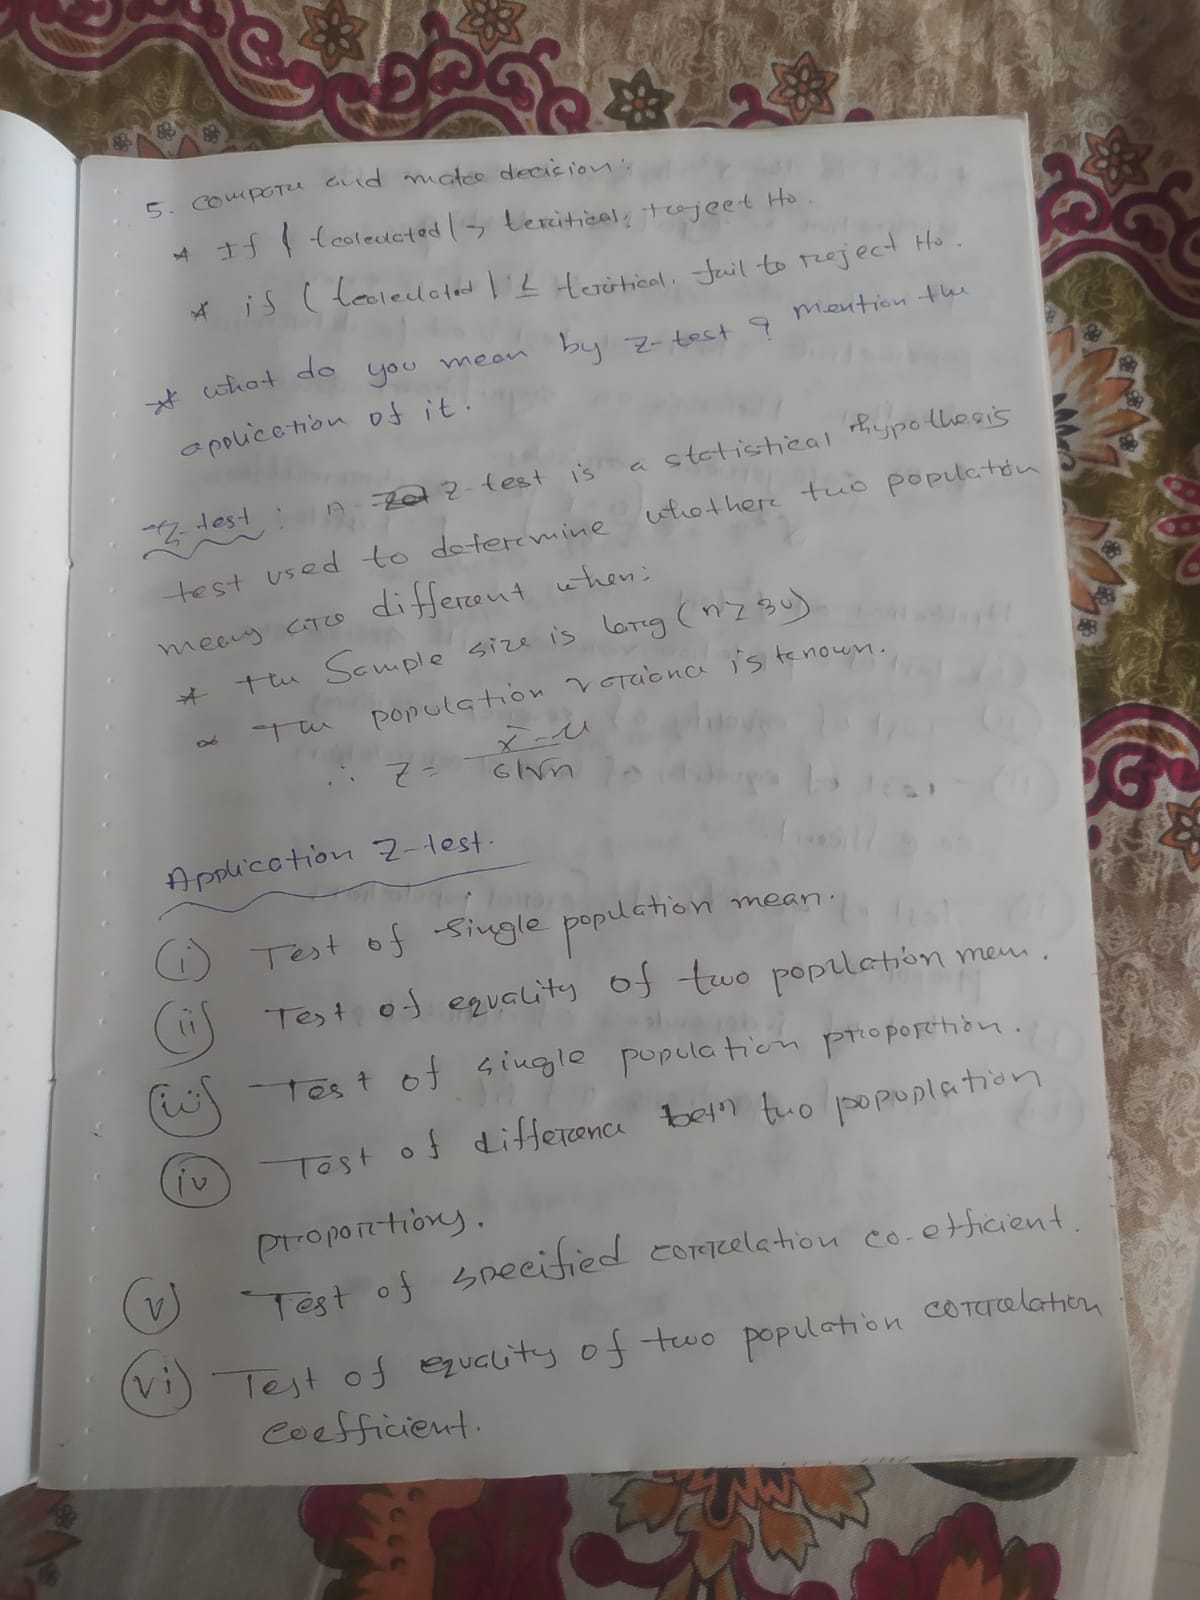 5. compare and make decision:
* If | tcalculated | > tcritical, reject Ho.
* if | tcalculated | ≤ tcritical, fail to reject Ho.
* what do you mean by Z-test? mention the
application of it.
Z-test: A Z-test is a statistical hypothesis
test used to determine whether two population
means are different when:
* the Sample size is larg (n≥30)
* The population variance is known.
∴ Z = x̄-μ / σ/√n
Application Z-test.
(i) Test of single population mean.
(ii) Test of equality of two population mean.
(iii) Test of single population proportion.
(iv) Test of difference betn two popuplation
proportions.
(v) Test of specified correlation co-efficient.
(vi) Test of equality of two population correlation
coefficient.